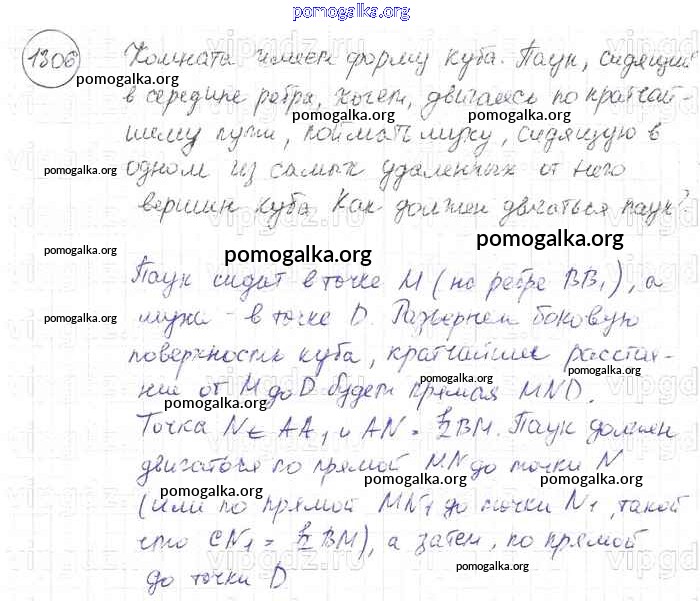 pomogalka.org
1306 Комната имеет форму куба. Паук, сидящий
pomogalka.org
в середине ребра, хочет, двигаясь по кратчай-
pomogalka.org pomogalka.org
шему пути, поймать муху, сидящую в
pomogalka.org
одном из самых удаленных от него
вершин куба. Как должен двигаться паук?
pomogalka.org pomogalka.org pomogalka.org
Паук сидит в точке M (на ребре BB₁), а
муха - в точке D. Развернем боковую
pomogalka.org
поверхность куба, кратчайшее расстоя-
pomogalka.org pomogalka.org
ние от M до D будет прямая MND.
pomogalka.org
Точка N ∈ AA₁ и AN = ½BM. Паук должен
двигаться по прямой MN до точки N
pomogalka.org pomogalka.org pomogalka.org
(или по прямой MN₁ до точки N₁, такой
что CN₁ = ½ BM), а затем, по прямой
pomogalka.org
до точки D